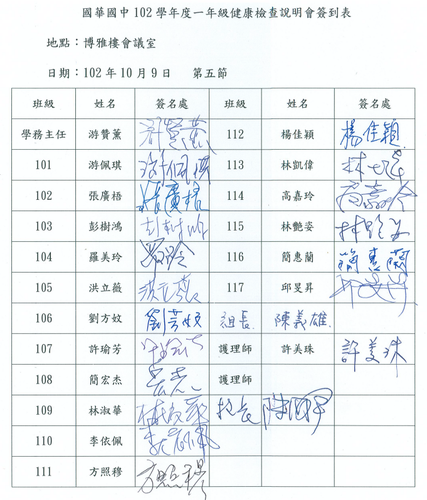 國華國中 102 學年度一年級健康檢查說明會簽到表
地點：博雅樓會議室
日期：102 年 10 月 9 日 第五節
班級 姓名 簽名處 班級 姓名 簽名處
學務主任 游贊薰 游贊薰 112 楊佳穎 楊佳穎
101 游佩琪 游佩琪 113 林凱偉 林
102 張廣梧 張廣梧 114 高嘉玲 高嘉玲
103 彭樹鴻 彭樹鴻 115 林艷姿 林艷姿
104 羅美玲 116 簡惠蘭 簡惠蘭
105 洪立薇 洪立薇 117 邱旻昇
106 劉方妏 劉芳妏 組長 陳義雄
107 許瑜芳 護理師 許美珠 許美珠
108 簡宏杰 宏杰 護理師
109 林淑華 林淑華 校長
110 李依佩 李依佩
111 方照穆 方照穆